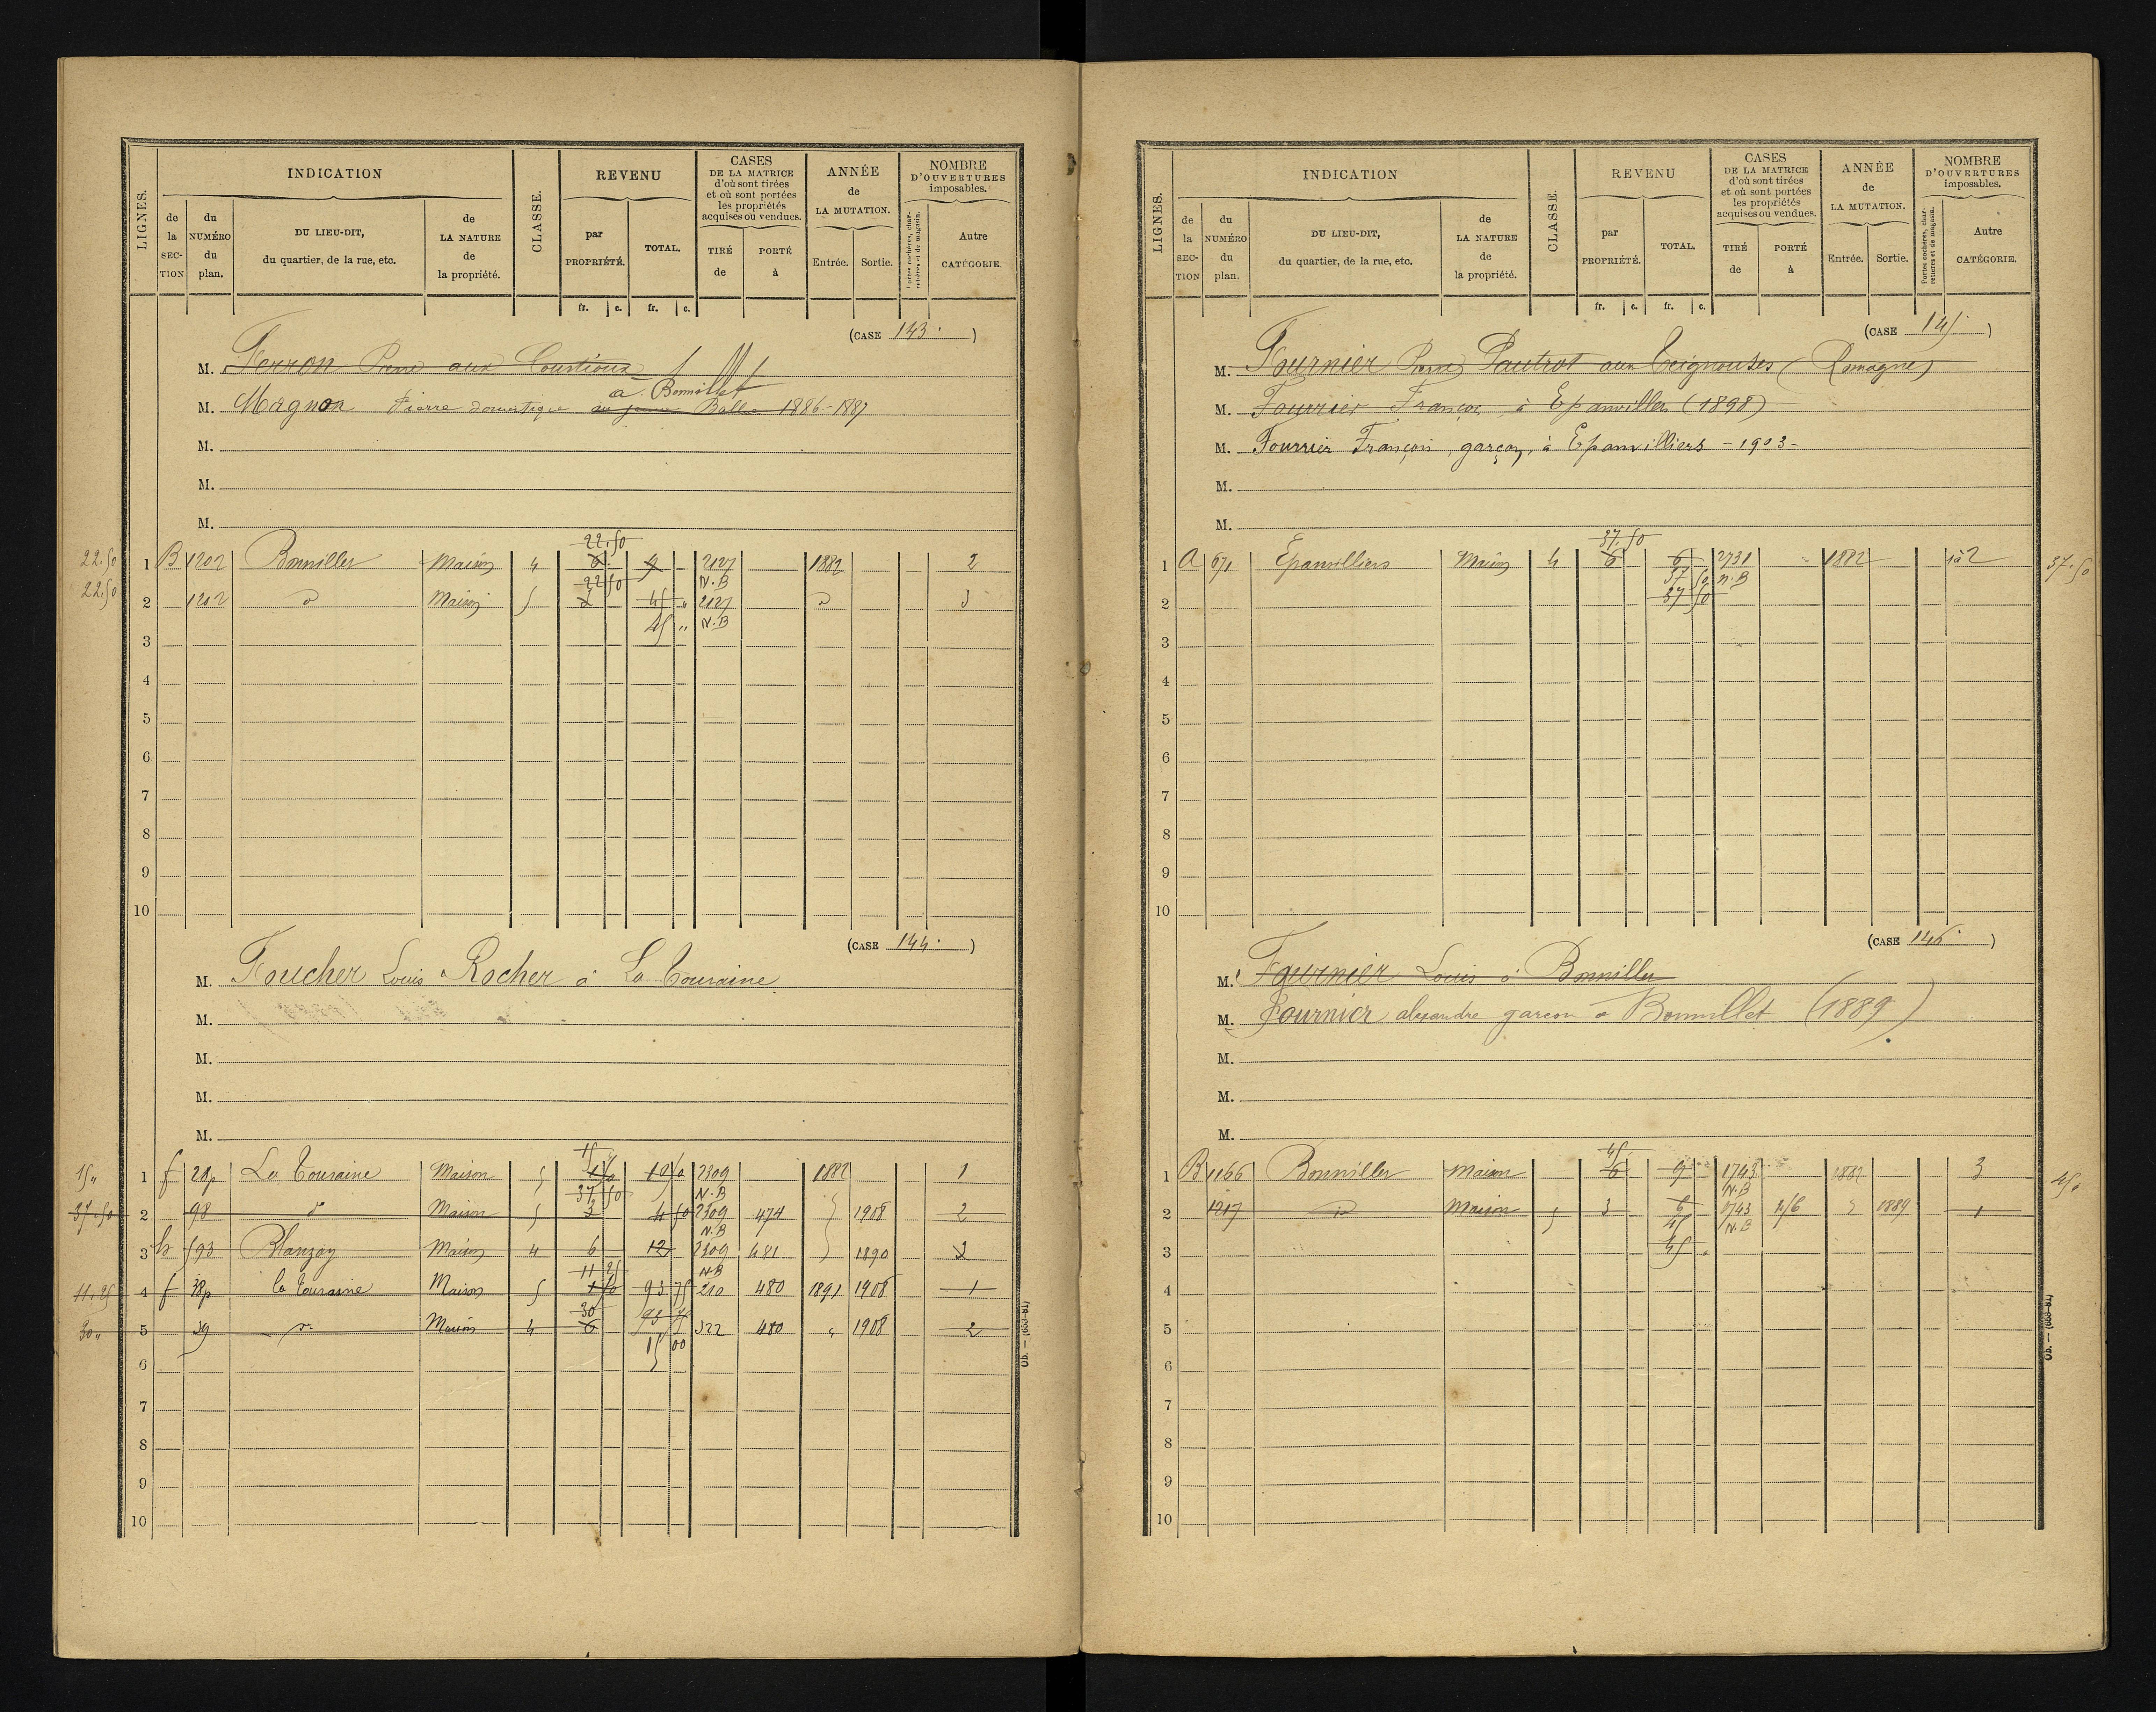 LIGNES. INDICATION CLASSE. REVENU CASES DE LA MATRICE d'où sont tirées et où sont portées les propriétés acquises ou vendues. ANNÉE de LA MUTATION. NOMBRE D'OUVERTURES imposables.
de la SEC-TION du NUMÉRO du plan. DU LIEU-DIT, du quartier, de la rue, etc. de LA NATURE de la propriété. par PROPRIÉTÉ. TOTAL. TIRÉ de PORTÉ à Entrée. Sortie. Portes cochères, charretières et de magasin. Autre CATÉGORIE.
fr. c. fr. c.
(CASE 143. )
M. Ferron Pierre aux Courtioux
à Bonnillet
M. Magnon Pierre domestique 1886-1887
M.
M.
M.
22.50
22.50 1 B 1202 Bonniller Maison 4 6 9 2127 1882 2
22 50 N.B
22.50 2 1202 d Maison 5 3 45 " 2127 d 3
45 " N.B
3
4
5
6
7
8
9
10
(CASE 144. )
M. Foucher Louis Rocher à La Touraine
M.
M.
M.
M.
15
15" 1 f 28p La Touraine Maison 5 1 50 10 50 2309 1882 1
37 50 N.B
37.50 2 98 d° Maison 5 3 4 50 2309 474 1908 2
N.B
3 h 593 Blanzay Maison 4 6 12 2309 681 1890 2
11 25 N.B
11.25 4 f 38p la Touraine Maison 5 1 50 93 75 210 480 1891 1908 1
30 93 75
30" 5 39 d° Maison 4 6 322 480 " 1908 2
15 00
6
7
8
9
10
Ob. — (633-81)
LIGNES. INDICATION CLASSE. REVENU CASES DE LA MATRICE d'où sont tirées et où sont portées les propriétés acquises ou vendues. ANNÉE de LA MUTATION. NOMBRE D'OUVERTURES imposables.
de la SEC-TION du NUMÉRO du plan. DU LIEU-DIT, du quartier, de la rue, etc. de LA NATURE de la propriété. par PROPRIÉTÉ. TOTAL. TIRÉ de PORTÉ à Entrée. Sortie. Portes cochères, charretières et de magasin. Autre CATÉGORIE.
fr. c. fr. c.
(CASE 145. )
M. Fournier Pierre Pautrot aux Teignouses (Romagne)
M. Fourrier François à Epanvillers (1898)
M. Fourrier François, garçon, à Epanvilliers - 1903 -
M.
M.
37.50
1 A 671 Epanvilliers Maison 4 6 6 2731 1882 1 à 2 37.50
37 50 N.B
2 37 50
3
4
5
6
7
8
9
10
(CASE 146. )
M. Fournier Louis à Bonniller
M. Fournier alexandre garçon à Bonnillet (1889)
M.
M.
M.
45
1 B 1166 Bonniller Maison 6 9 1743 1882 3 45"
N.B
2 1217 id Maison 5 3 6 1743 216 1889 1
45 N.B
3 45
4
5
6
7
8
9
10
Ob. — (633-81)